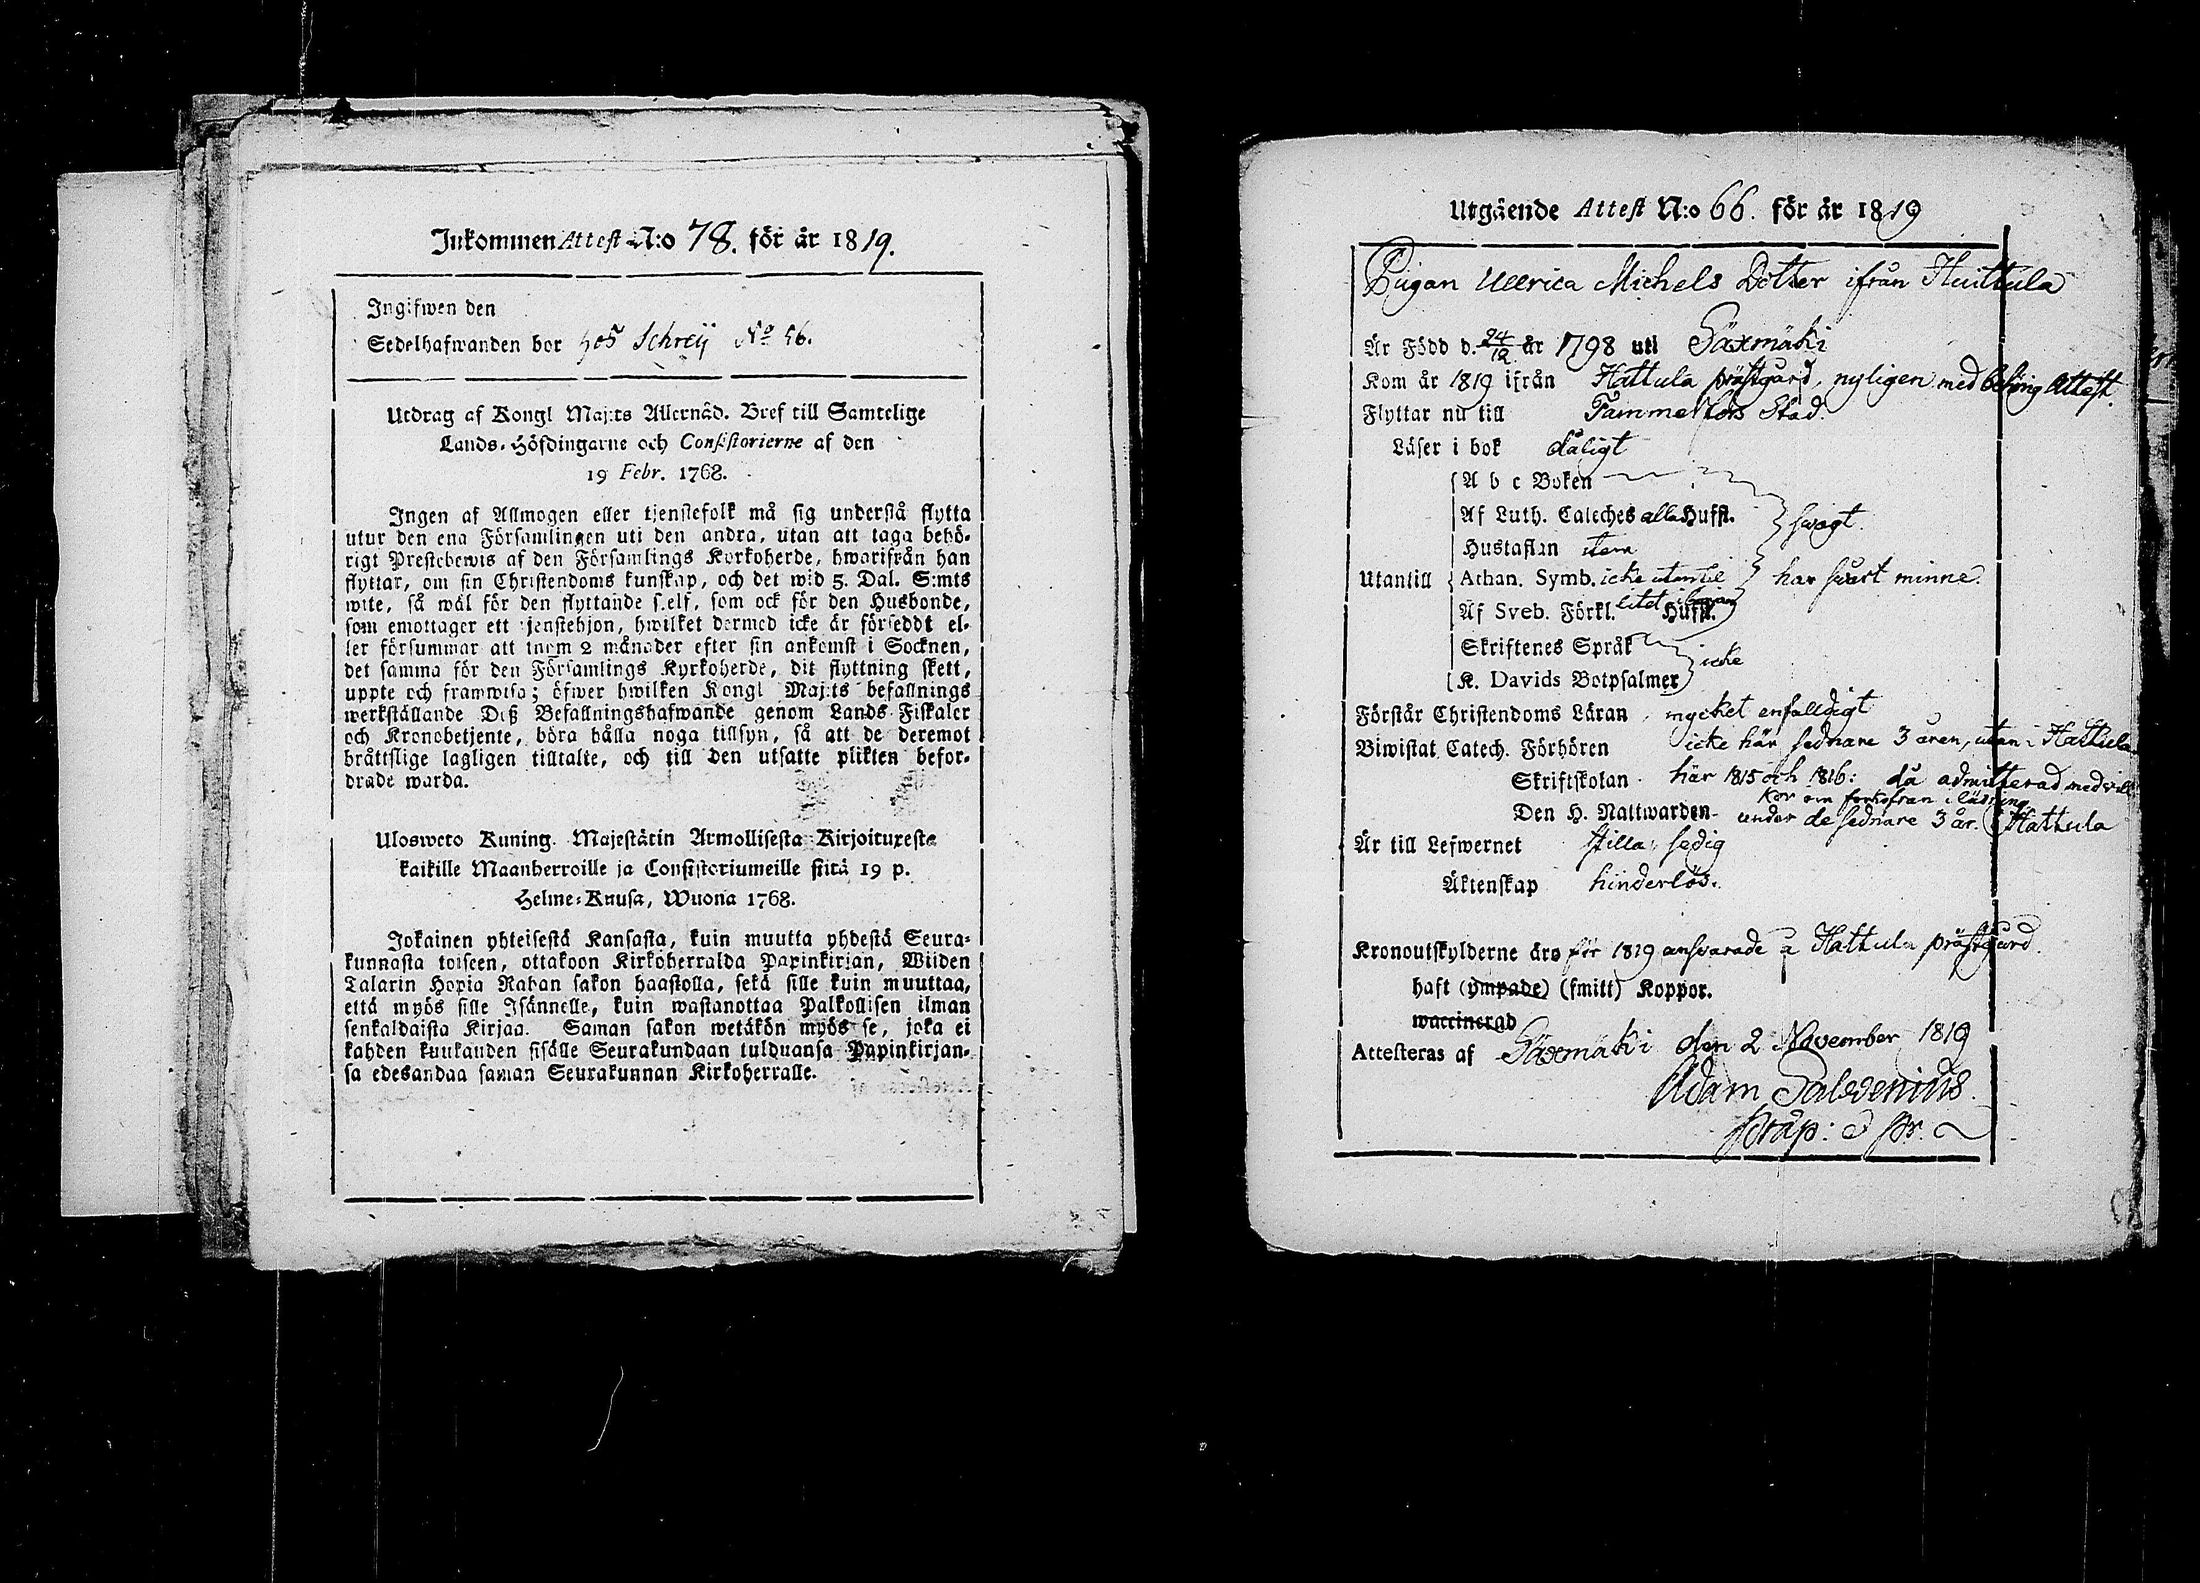 Inkommen Attest N:o 78. för år 1819.
Ingifwen den
Sedelhafwanden bor hos Schreij No 56.
Utdrag af Kongl Maj:ts Allernåd. Bref till Samtelige
Lands-Höfdingarne och Consistorierne af den
19 Febr. 1768.
Ingen af Allmogen eller tjenstefolk må sig understå flytta
utur den ena Församlingen uti den andra, utan att taga behö-
rigt Prestebewis af den Församlings Kyrkoherde, hwarifrån han
flyttar, om sin Christendoms kunskap, och det wid 5. Dal. S:mts
wite, så wäl för den flyttande self, som ock för den Husbonde,
som emottager ett tjenstehjon, hwilket dermed icke är försedd el-
ler försummar att inom 2 månader efter sin ankomst i Socknen,
det samma för den Församlings Kyrkoherde, dit flyttning skett,
uppte och framwisa; öfwer hwilken Kongl Maj:ts befallnings
werkställande Deß Befallningshafwande genom Lands Fiskaler
och Kronobetjente, böra hålla noga tillsyn, så att de deremot
bråttslige lagligen tilltalte, och till den utsatte plikten befor-
drade warda.
Uloswetо Kuning. Majestätin Armollisesta Kirjoituxesta
kaikille Maanherroille ja Consistoriumeille siitä 19 p.
Helme-Kuusa, Wuona 1768.
Jokainen yhteisestä Kansasta, kuin muutta yhdestä Seura-
kunnasta toiseen, ottakoon Kirkoherralda Papinkirjan, Wiiden
Talarin Hopia Rahan sakon haastolla, sekä sille kuin muuttaa,
että myös sille Isännelle, kuin wastanottaa Palkollisen ilman
senkaldaista Kirjaa. Saman sakon wetäkön myös se, joka ei
kahden kuukauden sisälle Seurakundaan tulduansa Papinkirjan-
sa edesandaa saman Seurakunnan Kirkoherralle.
Utgående Attest N:o 66. för år 1819
Pigan Ullrica Michels Dotter ifrån Huittula
Är Född d. 24/12 år 1798 uti Säxmäki
Kom år 1819 ifrån Hattula prästgård, nyligen med behörig Attest.
Flyttar nu till Tammerfors Stad.
Läser i bok dåligt
A b c Boken
Af Luth. Cateches alla Huffst. swagt.
Hustaflan item
Utantill Athan. Symb. icke utantil har swart minne.
Af Sveb. Förkl. litet Huffst.
Skriftenes Språk
icke
K. Davids Botpsalmer
Förstår Christendoms Läran mycket enfalldigt
Biwistat Catech. Förhören icke här sednare 3 åren, utan i Hattula
Skriftskolan här 1815 och 1816: då admitterad med vill
kor om förkofran i läsning
Den H. Nattwarden under de sednare 3 år. i Hattula
Är till Lefwernet stilla, sedig
Äktenskap hinderlös.
Kronoutskylderne äro för 1819 answarade å Hattula prästgård.
haft (ympade) (smitt) Koppor.
waccinerad
Attesteras af Säxmäki den 2 November 1819
Adam Salovenius.